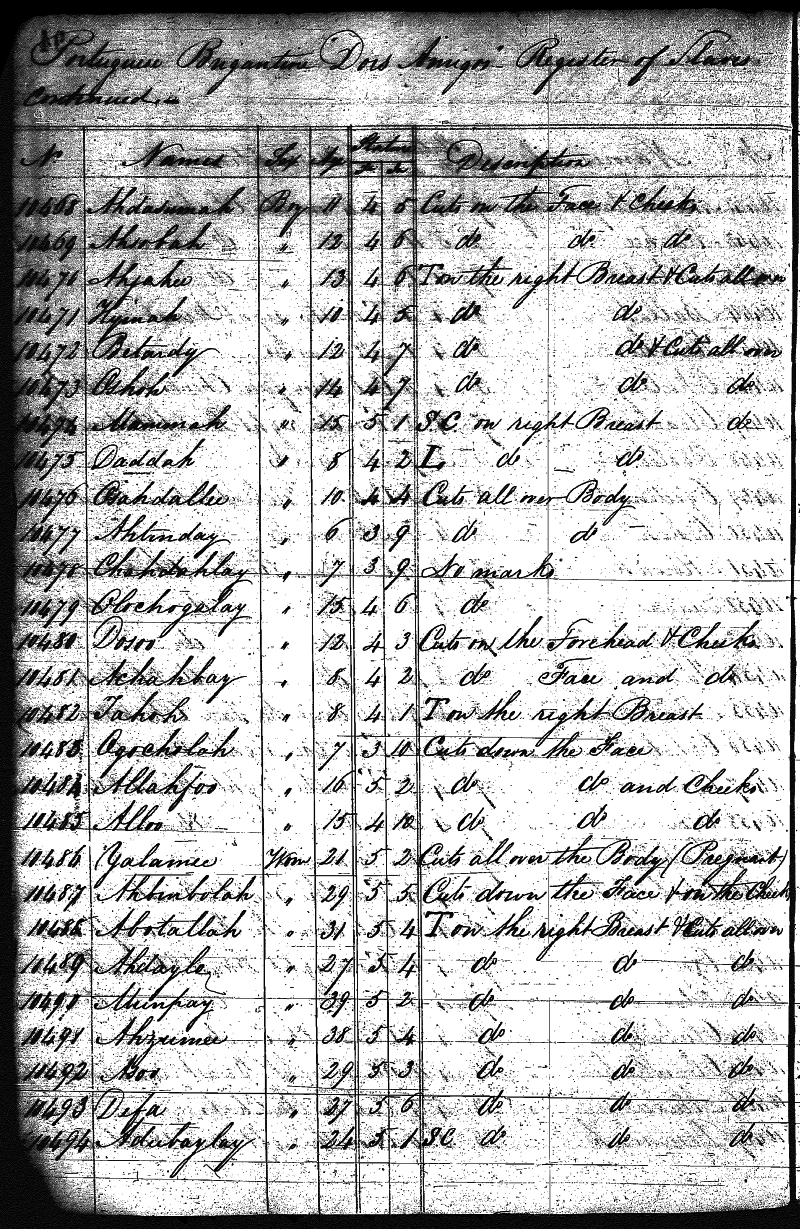 Portuguese Brigantine Dois Amigos Register of Slaves
Continued
No Names Sex Age Stature Description
Ft In
10468 Ahdasumah Boy 11 4 5 Cuts on the Face & Cheeks
10469 Ahsobah " 12 4 6 do do do
10471 Ahjahie " 13 4 6 T on the right Breast & Cuts all over
10471 " 10 4 5 do do
10472 Betardy " 12 4 7 do do & Cuts all over
10473 " 14 4 7 do do do
10474 " 15 5 1 SC on right Breast do
10475 Daddah " 8 4 2 L do do
10476 " 10 4 4 Cuts all over Body
10477 Ahtinday " 6 3 9 do do
10478 Chahdahlay " 7 3 9 No marks
10479 Olochogalay " 15 4 6 do
10480 Dosoo " 12 4 3 Cuts on the Forehead & Cheeks
10481 Achahbay " 8 4 2 do Face and do
10482 Tahoh " 8 4 1 T on the right Breast
10483 Ogocholah " 7 3 10 Cuts down the Face
10484 Allahfoo " 16 5 2 do do and Cheeks
10485 Alloo " 15 4 10 do do do
10486 Yalamee Wom 21 5 2 Cuts all over the Body (Pregnant)
10487 Ahbinbolah " 29 5 5 Cuts down the Face & on the Cheeks
10488 Abotallah " 31 5 4 T on the right Breast & Cuts all over
10489 Ahdayle " 27 5 4 do do do
10490 Munpay " 39 5 2 do do do
10491 Ahzumee " 38 5 4 do do do
10492 " 29 5 3 do do do
10493 Defa " 27 5 6 do do do
10494 Aderbaylay " 24 5 1 SC do do do